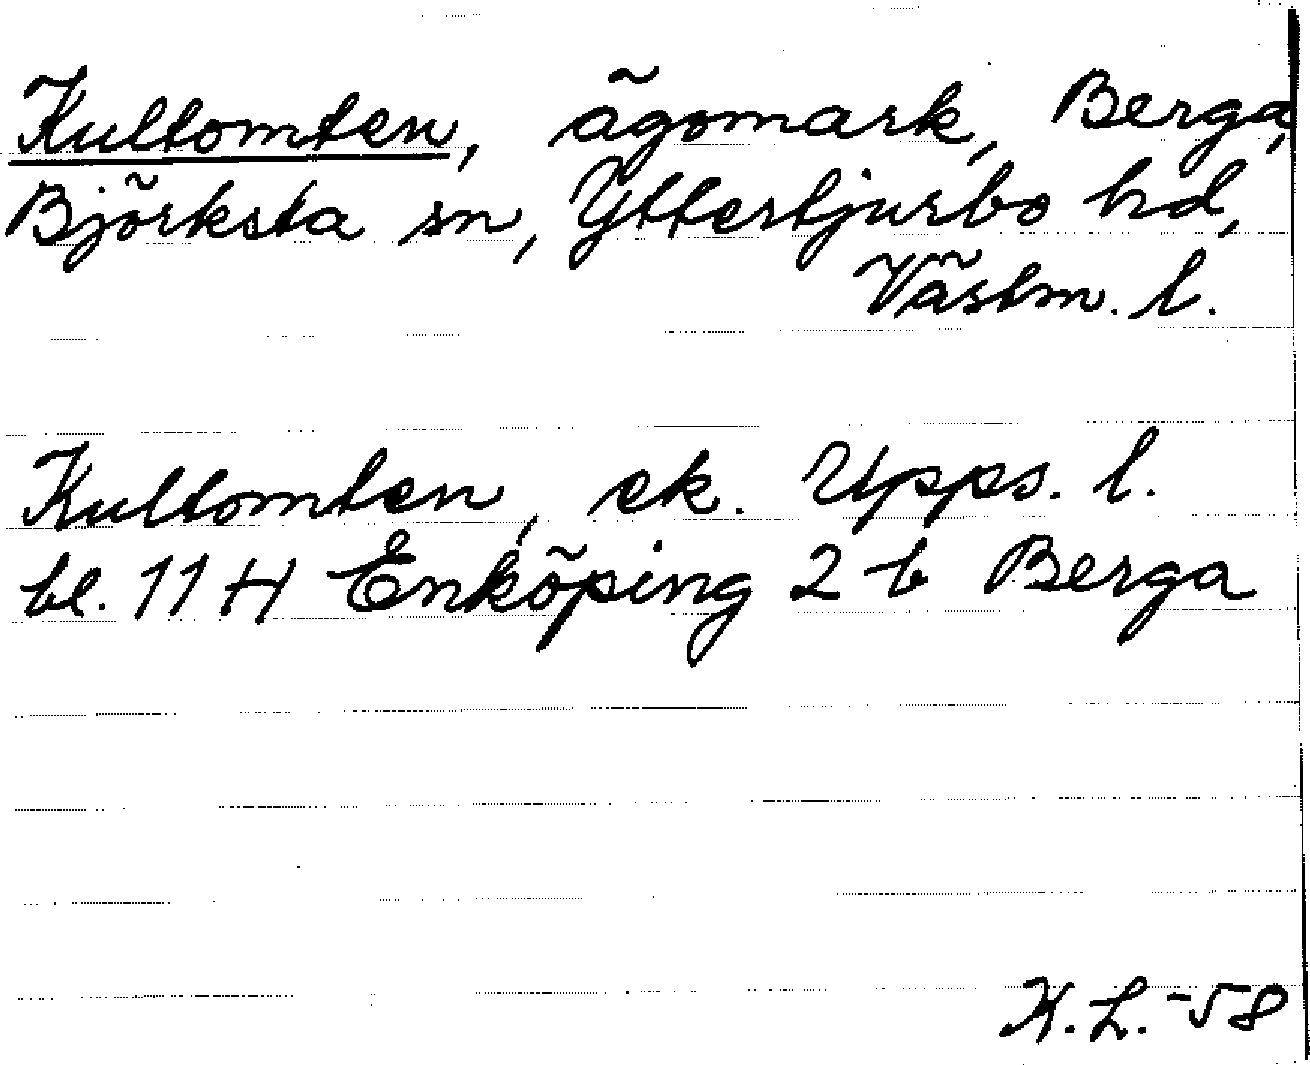 Kultomten, ägomark, Berga,
Björksta sn, Yttertjurbo hd,
Västm. l.
Kultomten, ek. Upps. l.
bl. 11 H Enköping 2 b Berga
K. L. -58